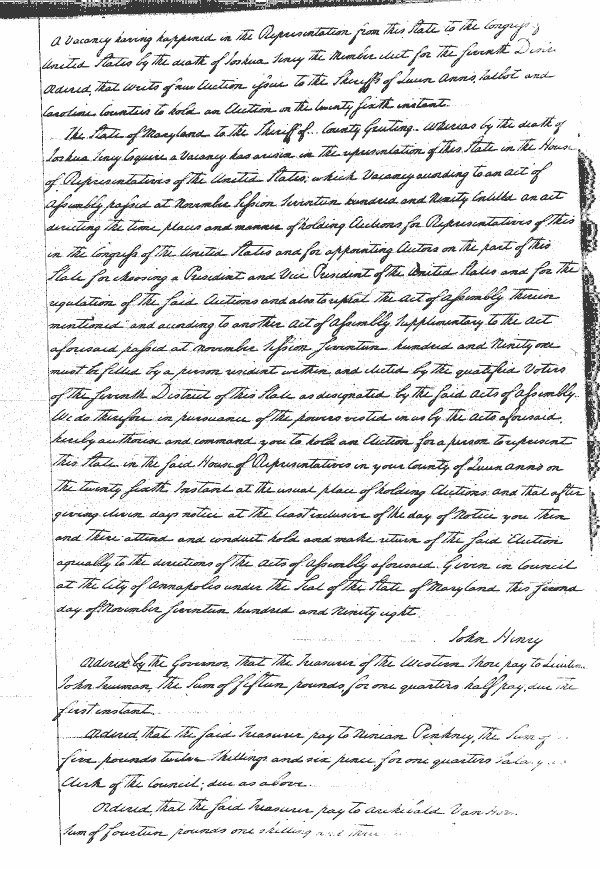 A Vacancy having happened in the Representation from this State to the Congress of
United States by the death of Joshua Seney the Member elect for the seventh
Ordered, that writs of Election issue to the Sheriffs of Queen Anns, Talbot and
Caroline Counties to hold an Election on the twenty sixth instant.
The State of Maryland to the Sheriff of County Greeting. Whereas by the death of
Joshua Seney Esquire a Vacancy has arisen in the representation of this State in the House
of Representatives of the United States, which Vacancy according to an act of
Assembly, passed at November Session Seventeen hundred and Ninety Entitled an act
directing the time places and manner of holding Elections for Representatives of this
in the Congress of the United States and for appointing Electors on the part of this
State for choosing a President and Vice President of the United States and for the
regulation of the said Elections and also to repeal the act of Assembly therein
mentioned and according to another Act of Assembly Supplimentary to the Act
aforesaid passed at November Session Seventeen hundred and Ninety one
must be filled by a person resident within, and elected by the qualified Voters
of the Seventh District of this State as designated by the said Acts of Assembly.
We do, therefore in pursuance of the powers vested in us by the Acts aforesaid,
hereby authorise and command you to hold an Election for a person to represent
this State in the said House of Representatives in your County of Queen Anns on
the twenty sixth Instant at the usual place of holding Elections. and that after
giving eleven days notice at the least inclusive of the day of Notice you then
and there attend and conduct hold and make return of the said Election
agreeably to the directions of the Acts of Assembly aforesaid. Given in Council
at the City of Annapolis under the Seal of the State of Maryland this second
day of November Seventeen hundred and Ninety eight.
John Henry
Ordered by the Governor, that the Treasurer of the Western Shore pay to
John Trueman, the Sum of fifteen pounds, for one quarters half pay, due the
first instant.
Ordered, that the said Treasurer pay to Ninian Pinkney, the Sum of
five pounds twelve Shillings and six pence for one quarters Salary as
Clerk of the Council; due as above.
Ordered, that the said Treasurer pay to Archibald Van
Sum of fourteen pounds one shilling and